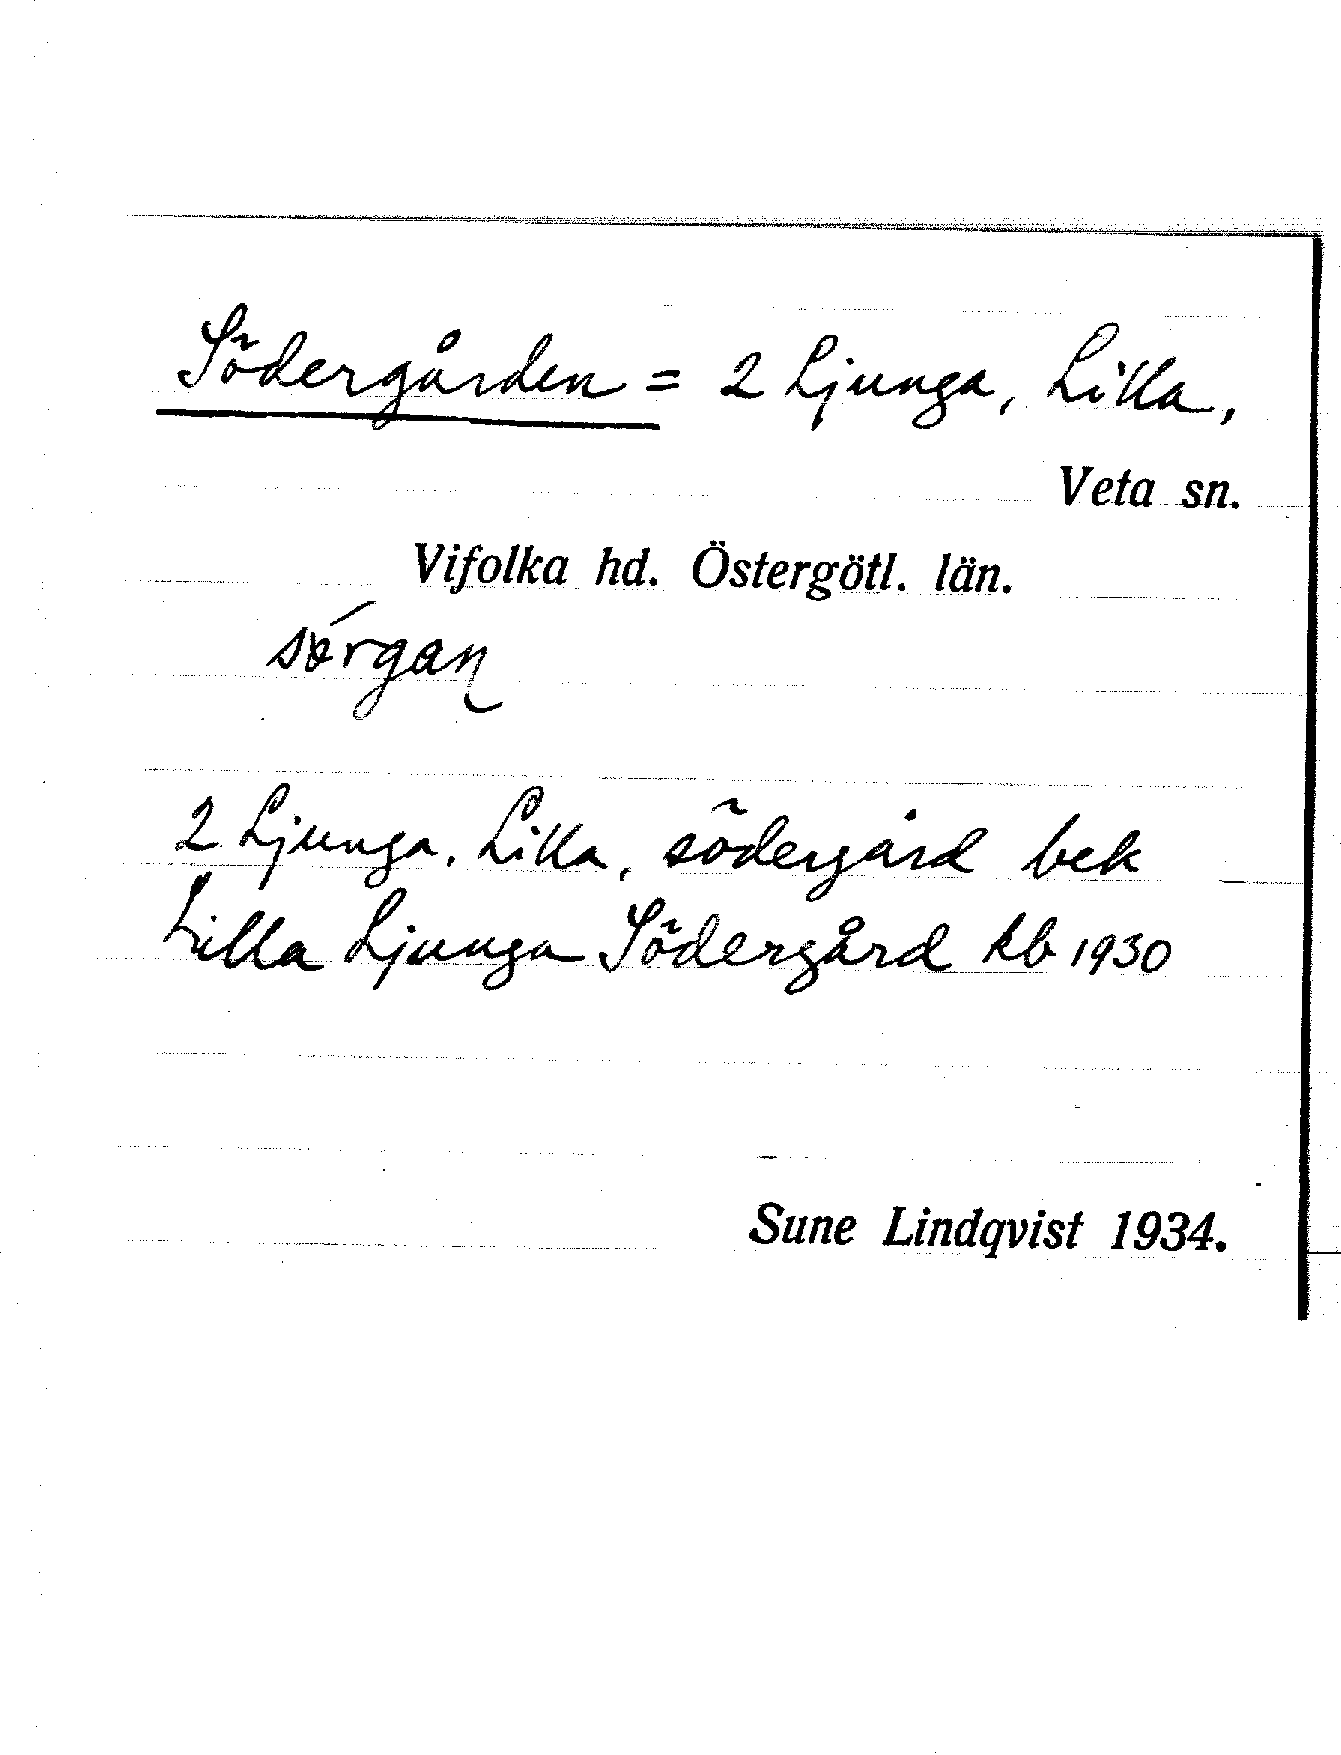 Södergården = 2 Ljunga, Lilla,
Veta sn.
Vifolka hd. Östergötl. län.
2 Ljunga, Lilla, södergård bek
Lilla Ljunga Södergård kb 1930
Sune Lindqvist 1934.